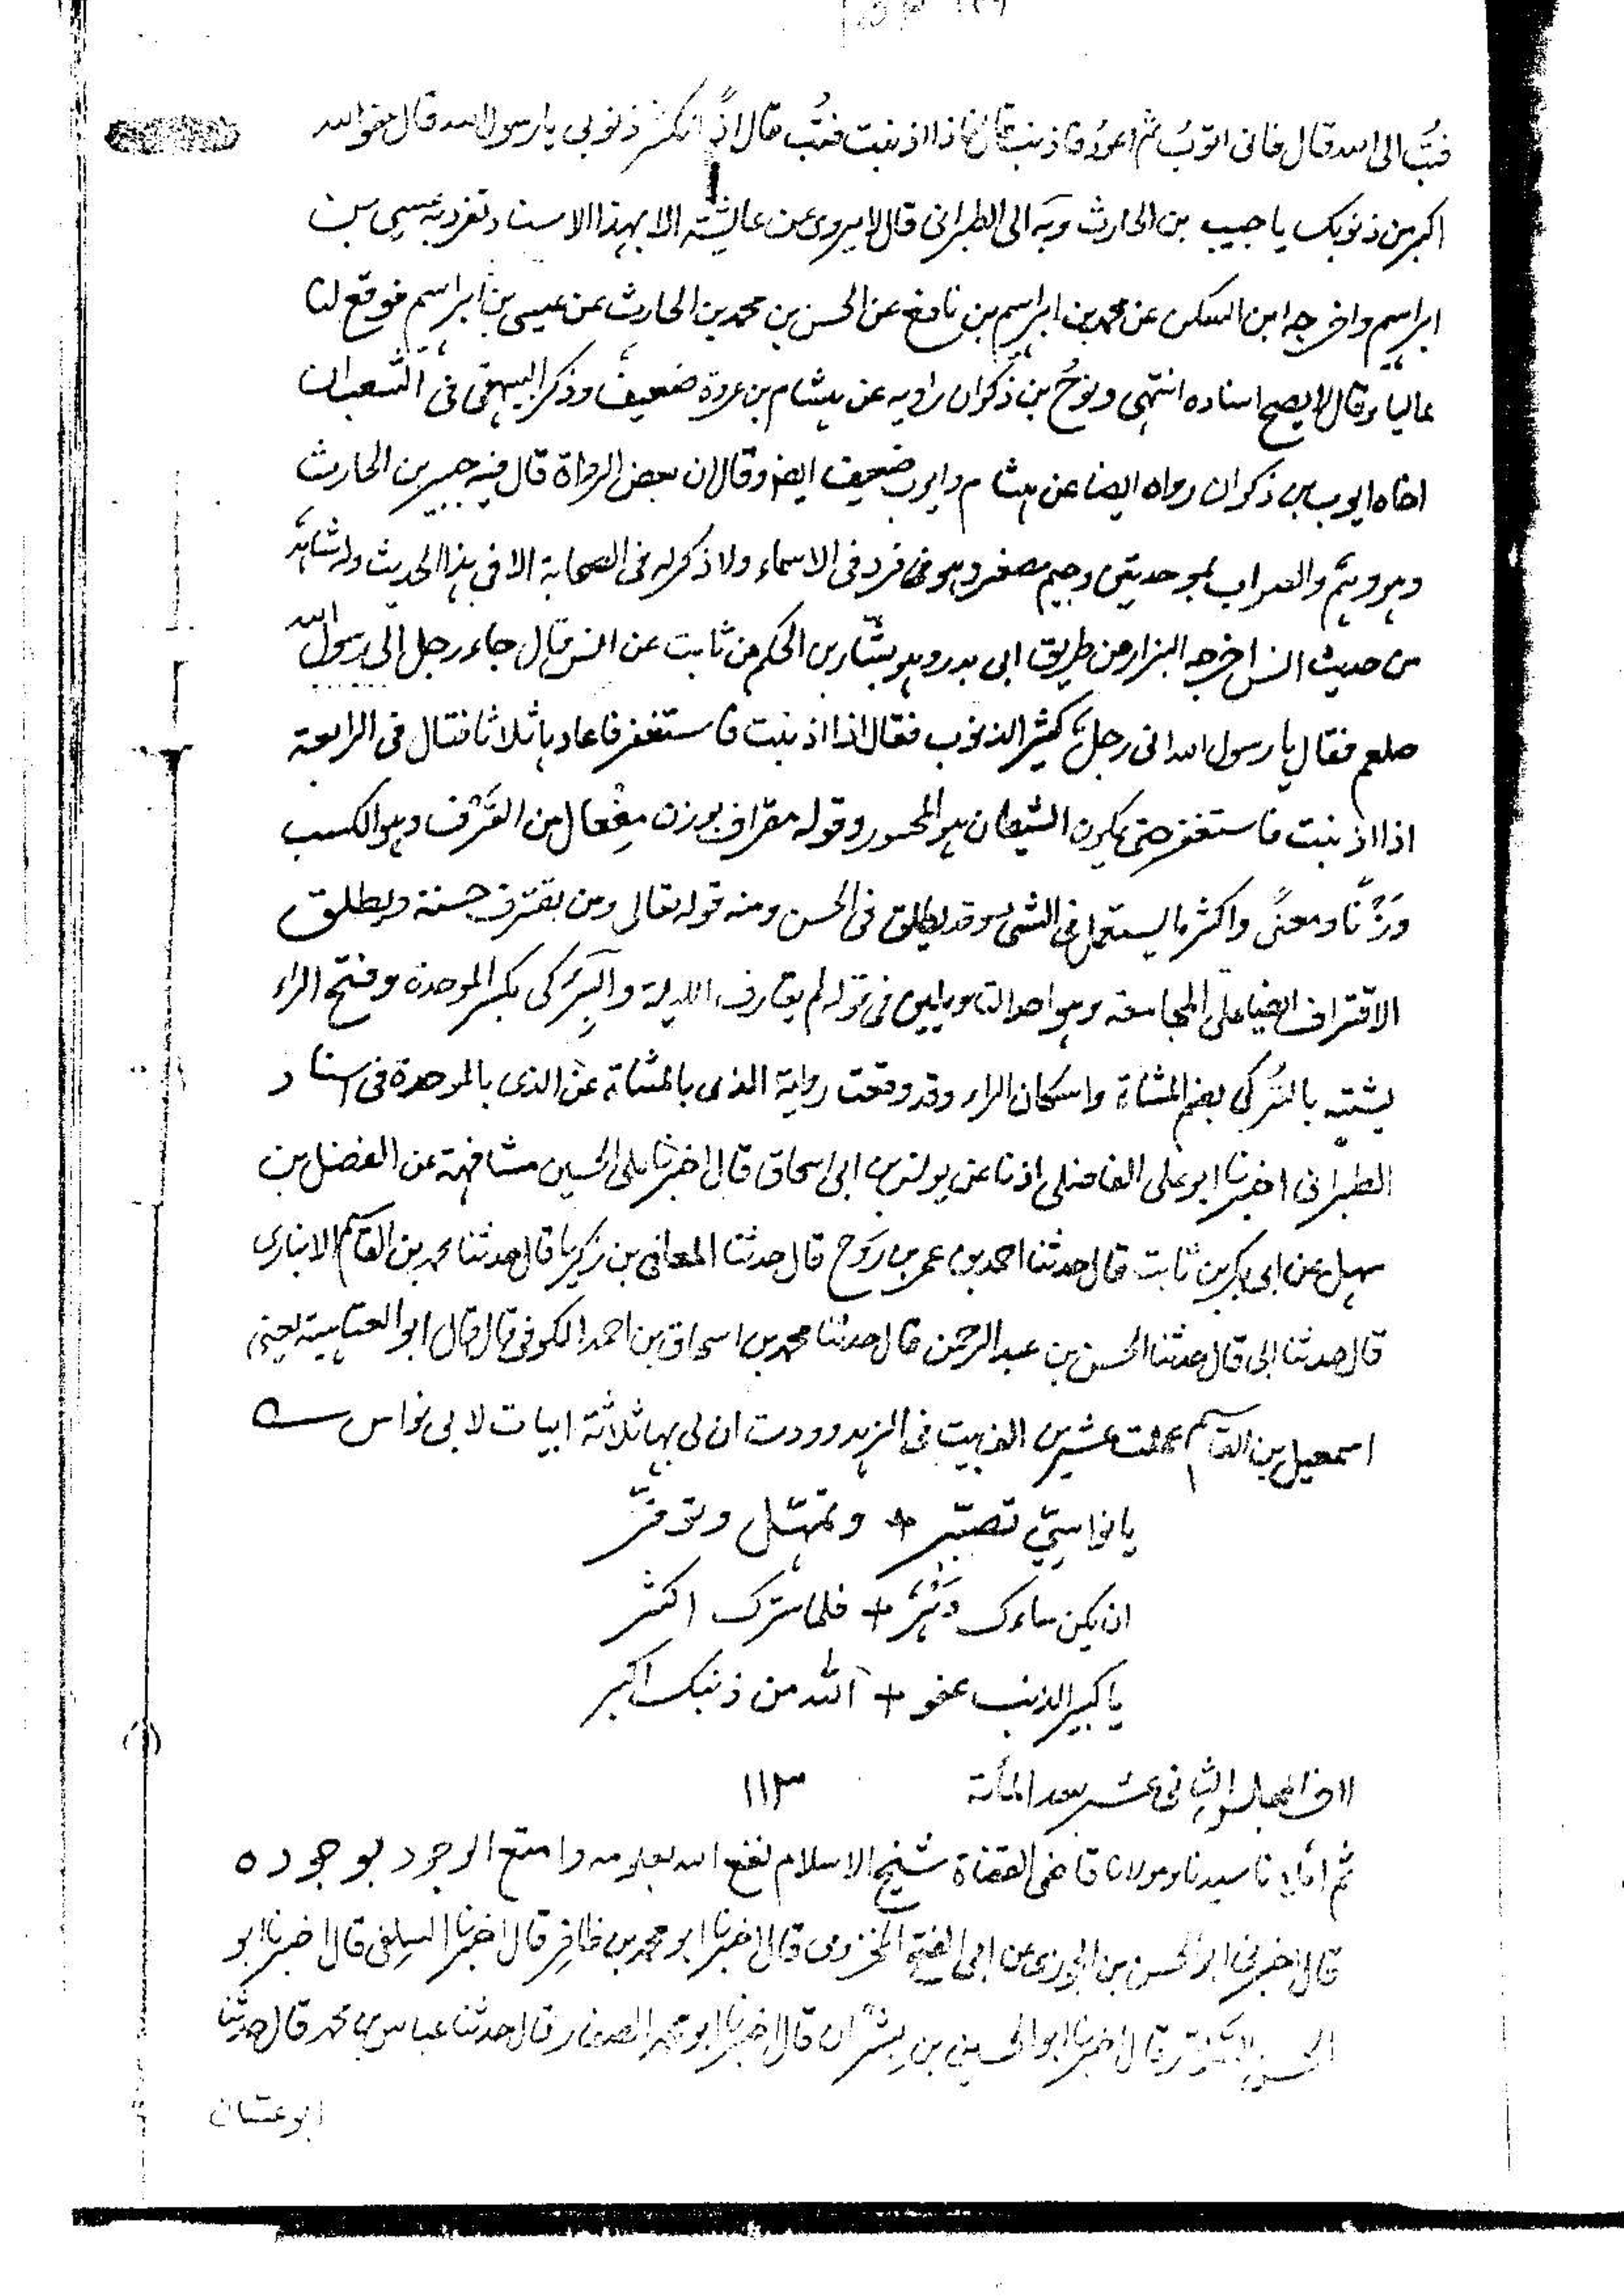 فتُب الى الله قال فانى اتوبُ ثم اعودُ فاذنب قال فاذا اذنبت فتُب قال اذًا تكثر ذنوبى يا رسول الله قال عفو الله
اكبر من ذنوبك يا حبيب بن الحارث وبه الى الطبرانى قال لا يروى عن عائشة الا بهذا الاسناد تفرد به عيسى بن
ابراهيم واخرجه ابن السكن عن محمد بن ابراهيم بن نافع عن الحسن بن محمد بن الحارث عن عيسى بن ابراهيم فوقع لنا
عاليا وقال لا يصح اسناده انتهى ونوحُ بن ذكوان راويه عن هشام بن عروة ضعيفٌ وذكر البيهقى فى الشعب ان
اخاه ايوب بن ذكوان رواه ايضا عن هشام وايوب ضعيف ايضا وقال ان بعض الرواة قال فيه جبير بن الحارث
وهو وهم والصواب بموحدتين وجيم مصغر وهو فرد فى الاسماء ولا ذكر له فى الصحابة الا فى هذا الحديث وله شاهد
من حديث انس اخرجه البزار من طريق ابى بدر وهو بشار بن الحكم عن ثابت عن انس قال جاء رجل الى رسول الله
صلعم فقال يا رسول الله انى رجلٌ كثير الذنوب فقال اذا اذنبت فاستغفر فاعادها ثلاثا فقال فى الرابعة
اذا اذنبت فاستغفر حتى يكون الشيطان هو المحسور وقوله مقراف بوزن مِفْعال من القَرْف وهو الكسب
وَزْنًا ومعنًى واكثر ما يستعمل فى الشئ السوء وقد يطلق فى الحسن ومنه قوله تعالى ومن يقترف حسنة ويطلق
الاقتراف ايضا على المجامعة وهو احد التاويلين فى قوله لم يقارف الليلة والبِرَكى بكسر الموحدة وفتح الراء
يشتبه بالتُركى بضم المثناة واسكان الراء وقد وقعت رواية الذى بالمثناة عن الذى بالموحدة فى اسناد
الطبرانى اخبرنا ابو على الفاضلى اذنا عن يونس بن ابى اسحاق قال اخبرنا على بن الحسين مشافهة عن الفضل بن
سهل عن ابى بكر بن ثابت قال حدثنا احمد بن عمر بن رَوح قال حدثنا المعافى بن زكريا قال حدثنا محمد بن القاسم الانبارى
قال حدثنا ابى قال حدثنا الحسن بن عبد الرحمن قال حدثنا محمد بن اسحاق بن احمد الكوفى قال قال ابو العتاهية يعنى
اسمعيل بن القاسم عملت عشرين الف بيت فى الزهد ووددت ان لى بها ثلاثة ابيات لابى نواس
يا نواسىّ تصبّر + وتمهّل وتوقّر
ان يكن ساءك دَهْرٌ + فلما سرّك اكثر
يا كبير الذنب عفو + الله من ذنبك اكبر
اخر المجلس الثانى عشر بعد المائة ١١٣
ثم املانا سيدنا ومولانا قاضى القضاة شيخ الاسلام نفع الله بعلومه وامتع الوجود بوجوده
قال اخبرنى ابو الحسن بن الجوزى عن ابى الفتح المخزومى قال اخبرنا ابو محمد بن ظافِر قال اخبرنا السِلفى قال اخبرنا ابو
قال اخبرنا ابو الحسين بن بِشْران قال اخبرنا ابو محمد الصفار قال حدثنا عباس بن محمد قال حدثنا
ابو عتبان